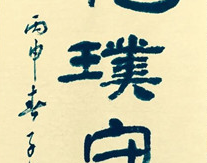 璞守
丙申春子